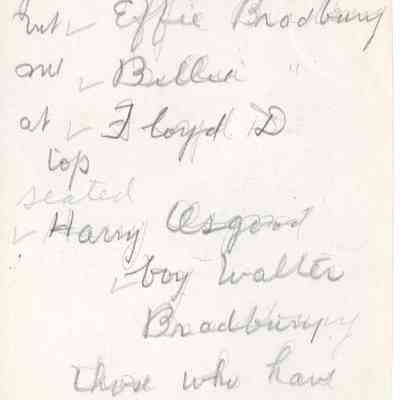 Effie Bradbury
Billie "
at Floyd D
top
seated
Harry Osgood
boy Walter
Bradbury
those who have